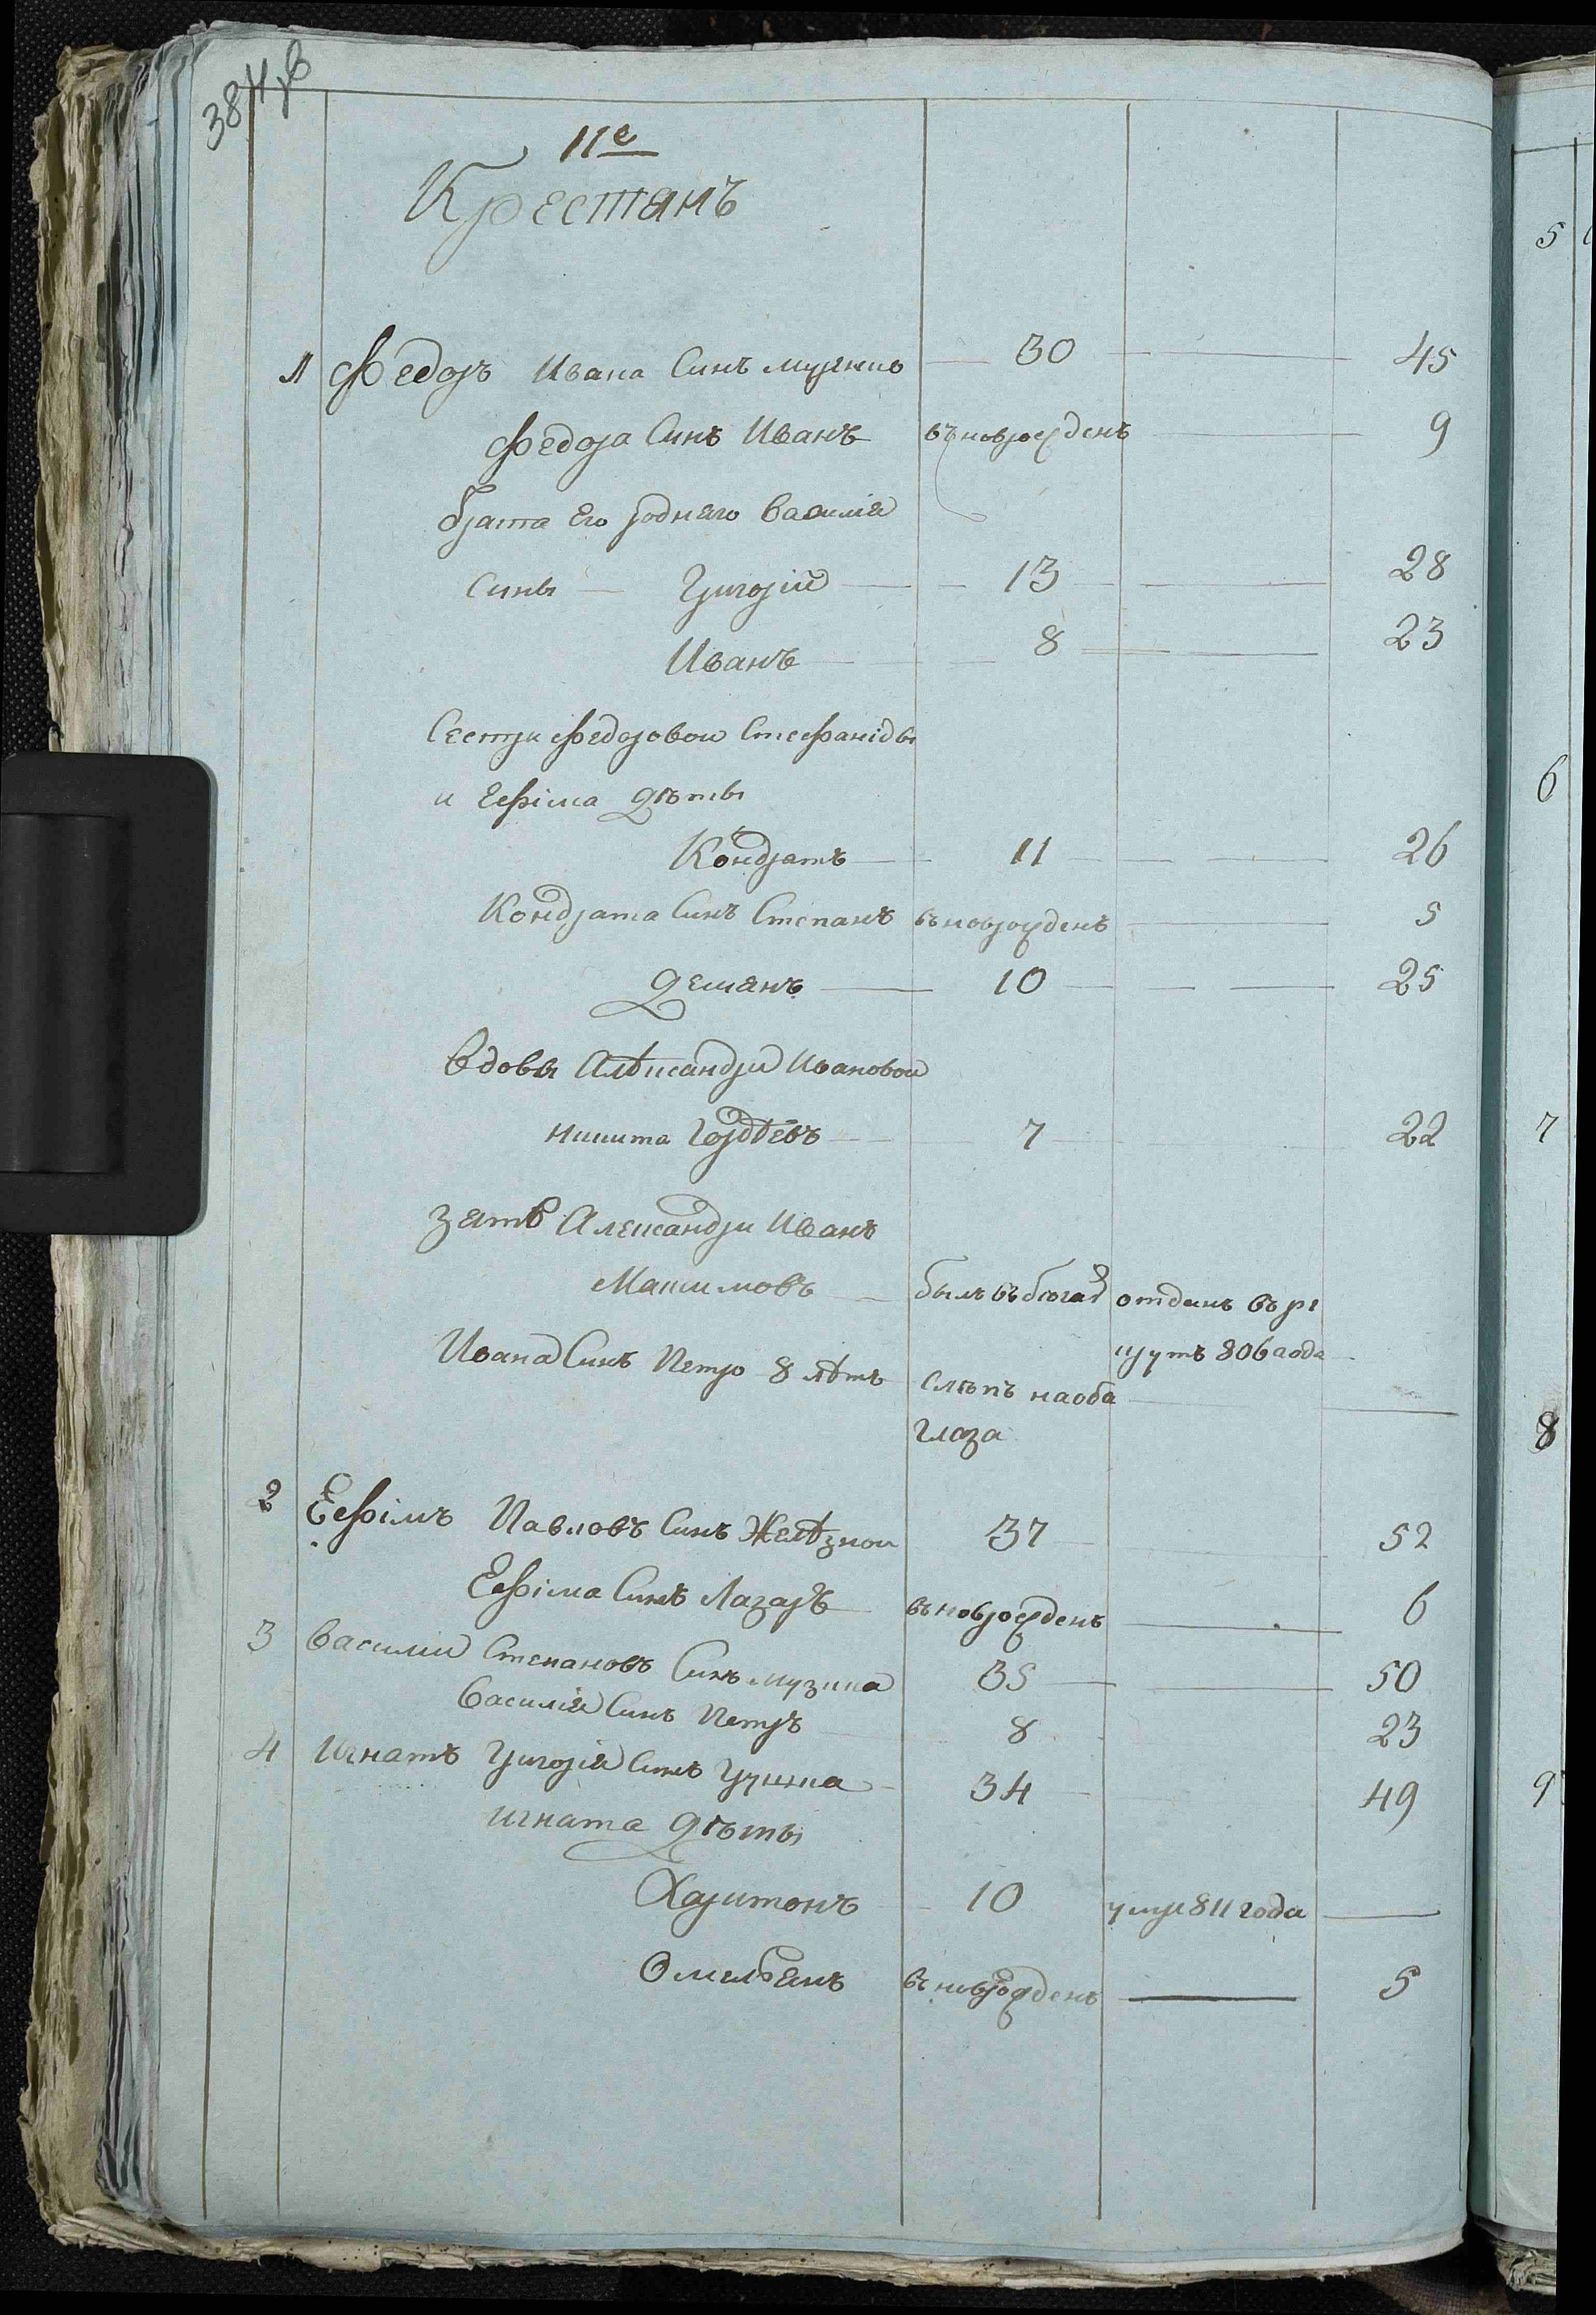 384
11е
Крестянъ
1 Федоръ Ивана Синъ 30 45
Федора Синъ Иванъ въновьрожденъ 9
брата Его роднаго Василія
Сины Григорій 13 28
Иванъ 8 23
Сестри Федоровои Стефаніды
и Ефіма дѣты
Кондратъ 11 26
Кондрата Синъ Степанъ въновьрожденъ 5
Демянъ 10 25
Вдовы Алѣксандри Ивановои
Никита Гордѣевъ 7 22
Зять Александри Иванъ
Максимовъ былъ въ бегах отданъ въ ре
крутъ 806 года
Ивана Синъ Петро 8 лѣтъ слѣпъ на оба
глаза
2 Ефімъ Павловъ Синъ Желѣзнои 37 52
Ефіма Синъ Лазаръ въновьрожденъ 6
3 Василии Степановъ Синъ Музика 35 50
Василія Синъ Петръ 8 23
4 Игнатъ Григорія Синъ 34 49
Игната Дѣты
Харитонъ 10 умре 811 года
Омельянъ въновьрожденъ 5
5
6
7
8
9